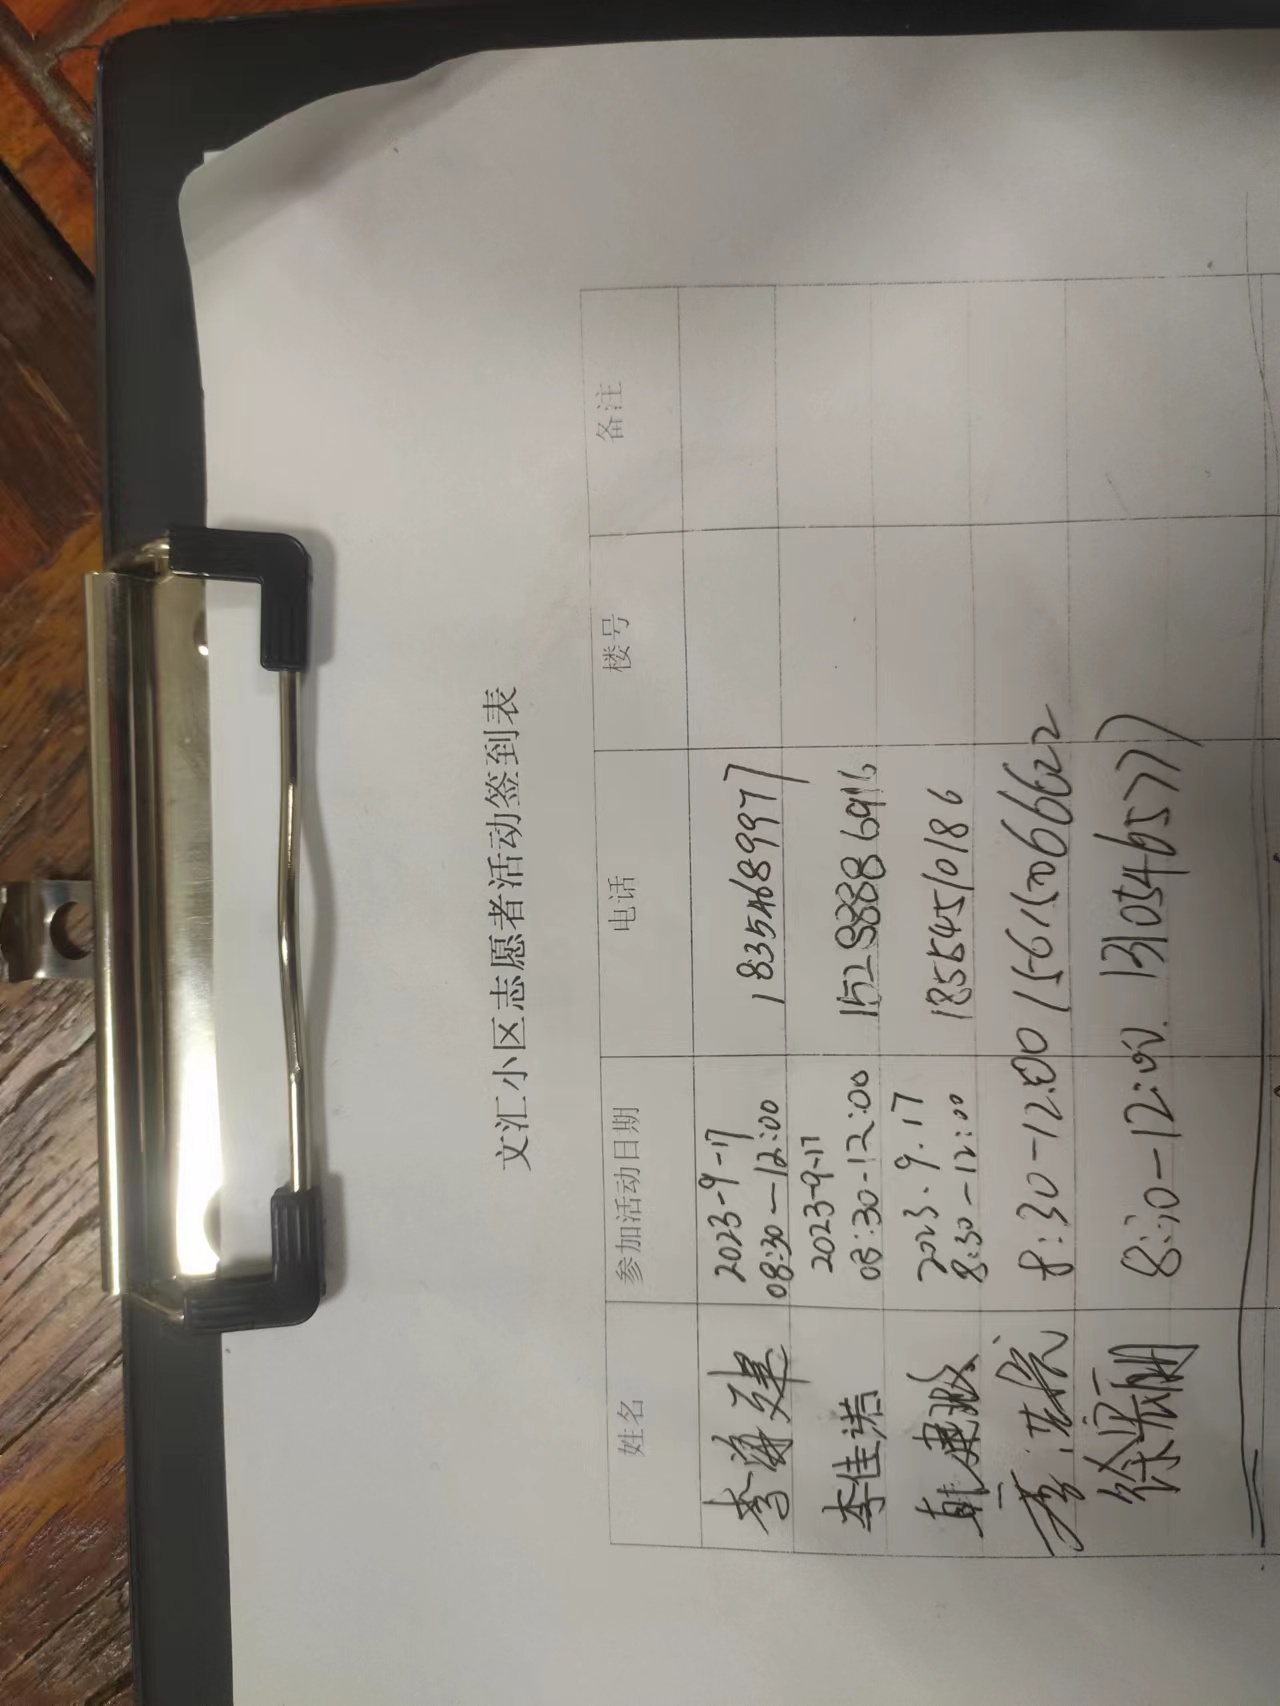 文汇小区志愿者活动签到表
姓名 参加活动日期 电话 楼号 备注
李海建 2023-9-17 08:30-12:00 18354689977
李佳诺 2023-9-17 08:30-12:00 15288886916
韩建 2023.9.17 8:30-12:00 18554510186
李洪 8:30-12:00 15615066622
徐 8:30-12:00 13105465777